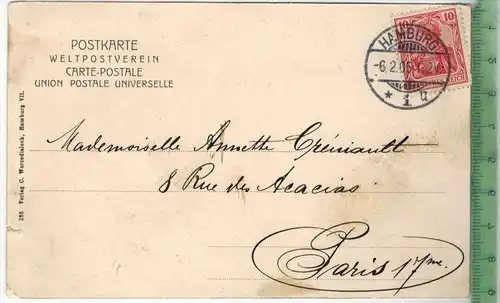 POSTKARTE
WELTPOSTVEREIN
CARTE-POSTALE
UNION POSTALE UNIVERSELLE
HAMBURG
-6.2.06
* 1 u
10
Mademoiselle Annette Crémiault
8 Rue des Acacias
Paris 17me.
Verlag C. Hamburg VII.